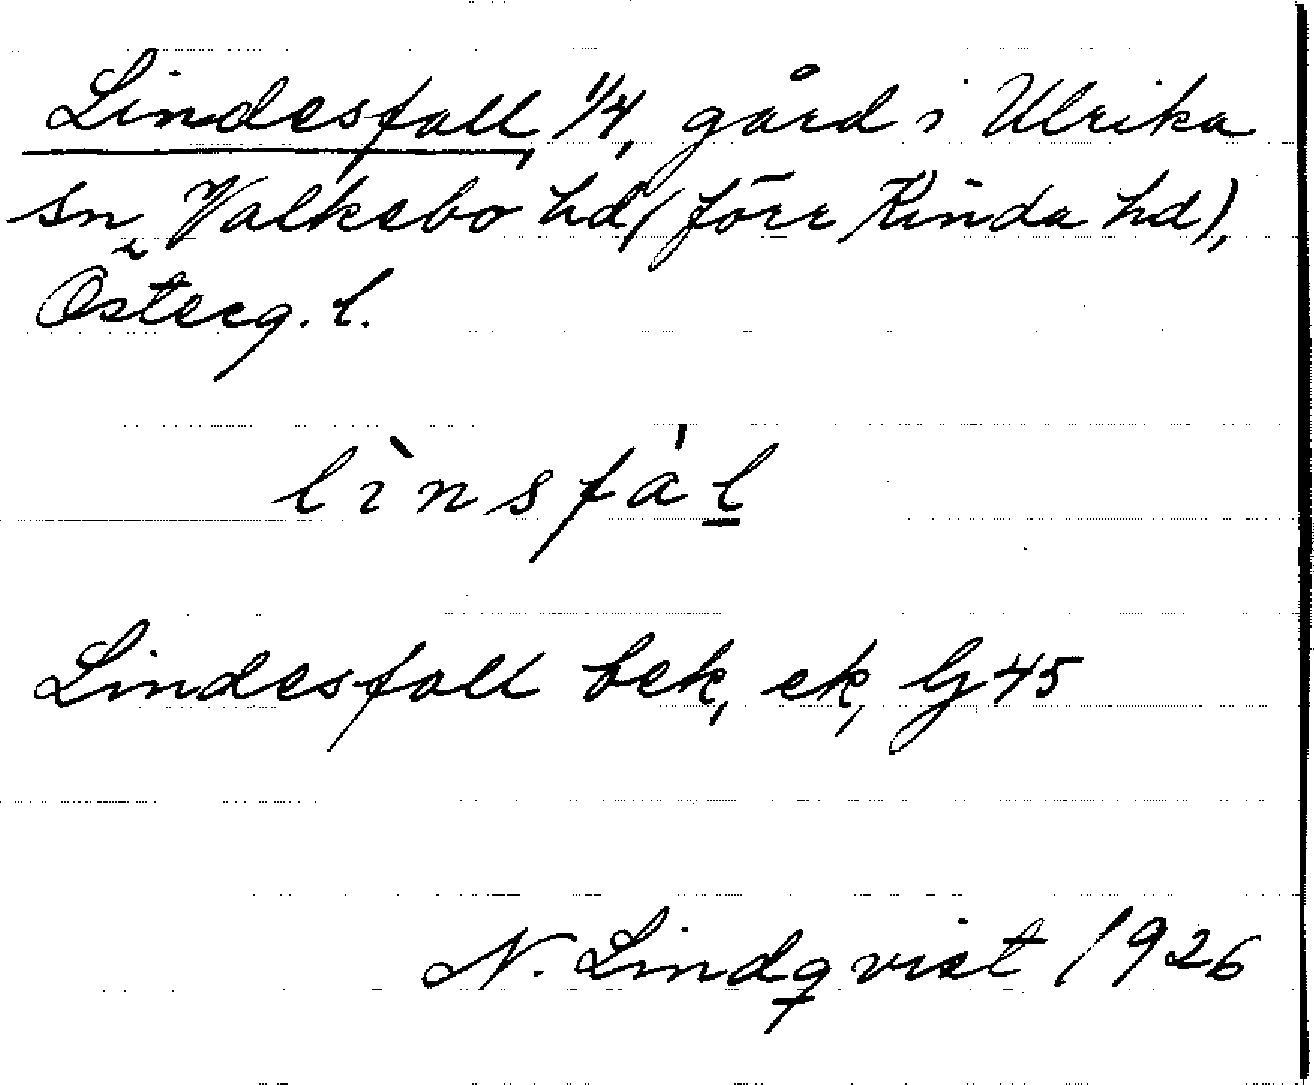 Lindesfall, 1/4, gård i Ulrika
sn, Valkebo hd (förr Kinda hd),
Österg. l.
lìnsfál
Lindesfall bek, ek, G45
N. Lindqvist 1926